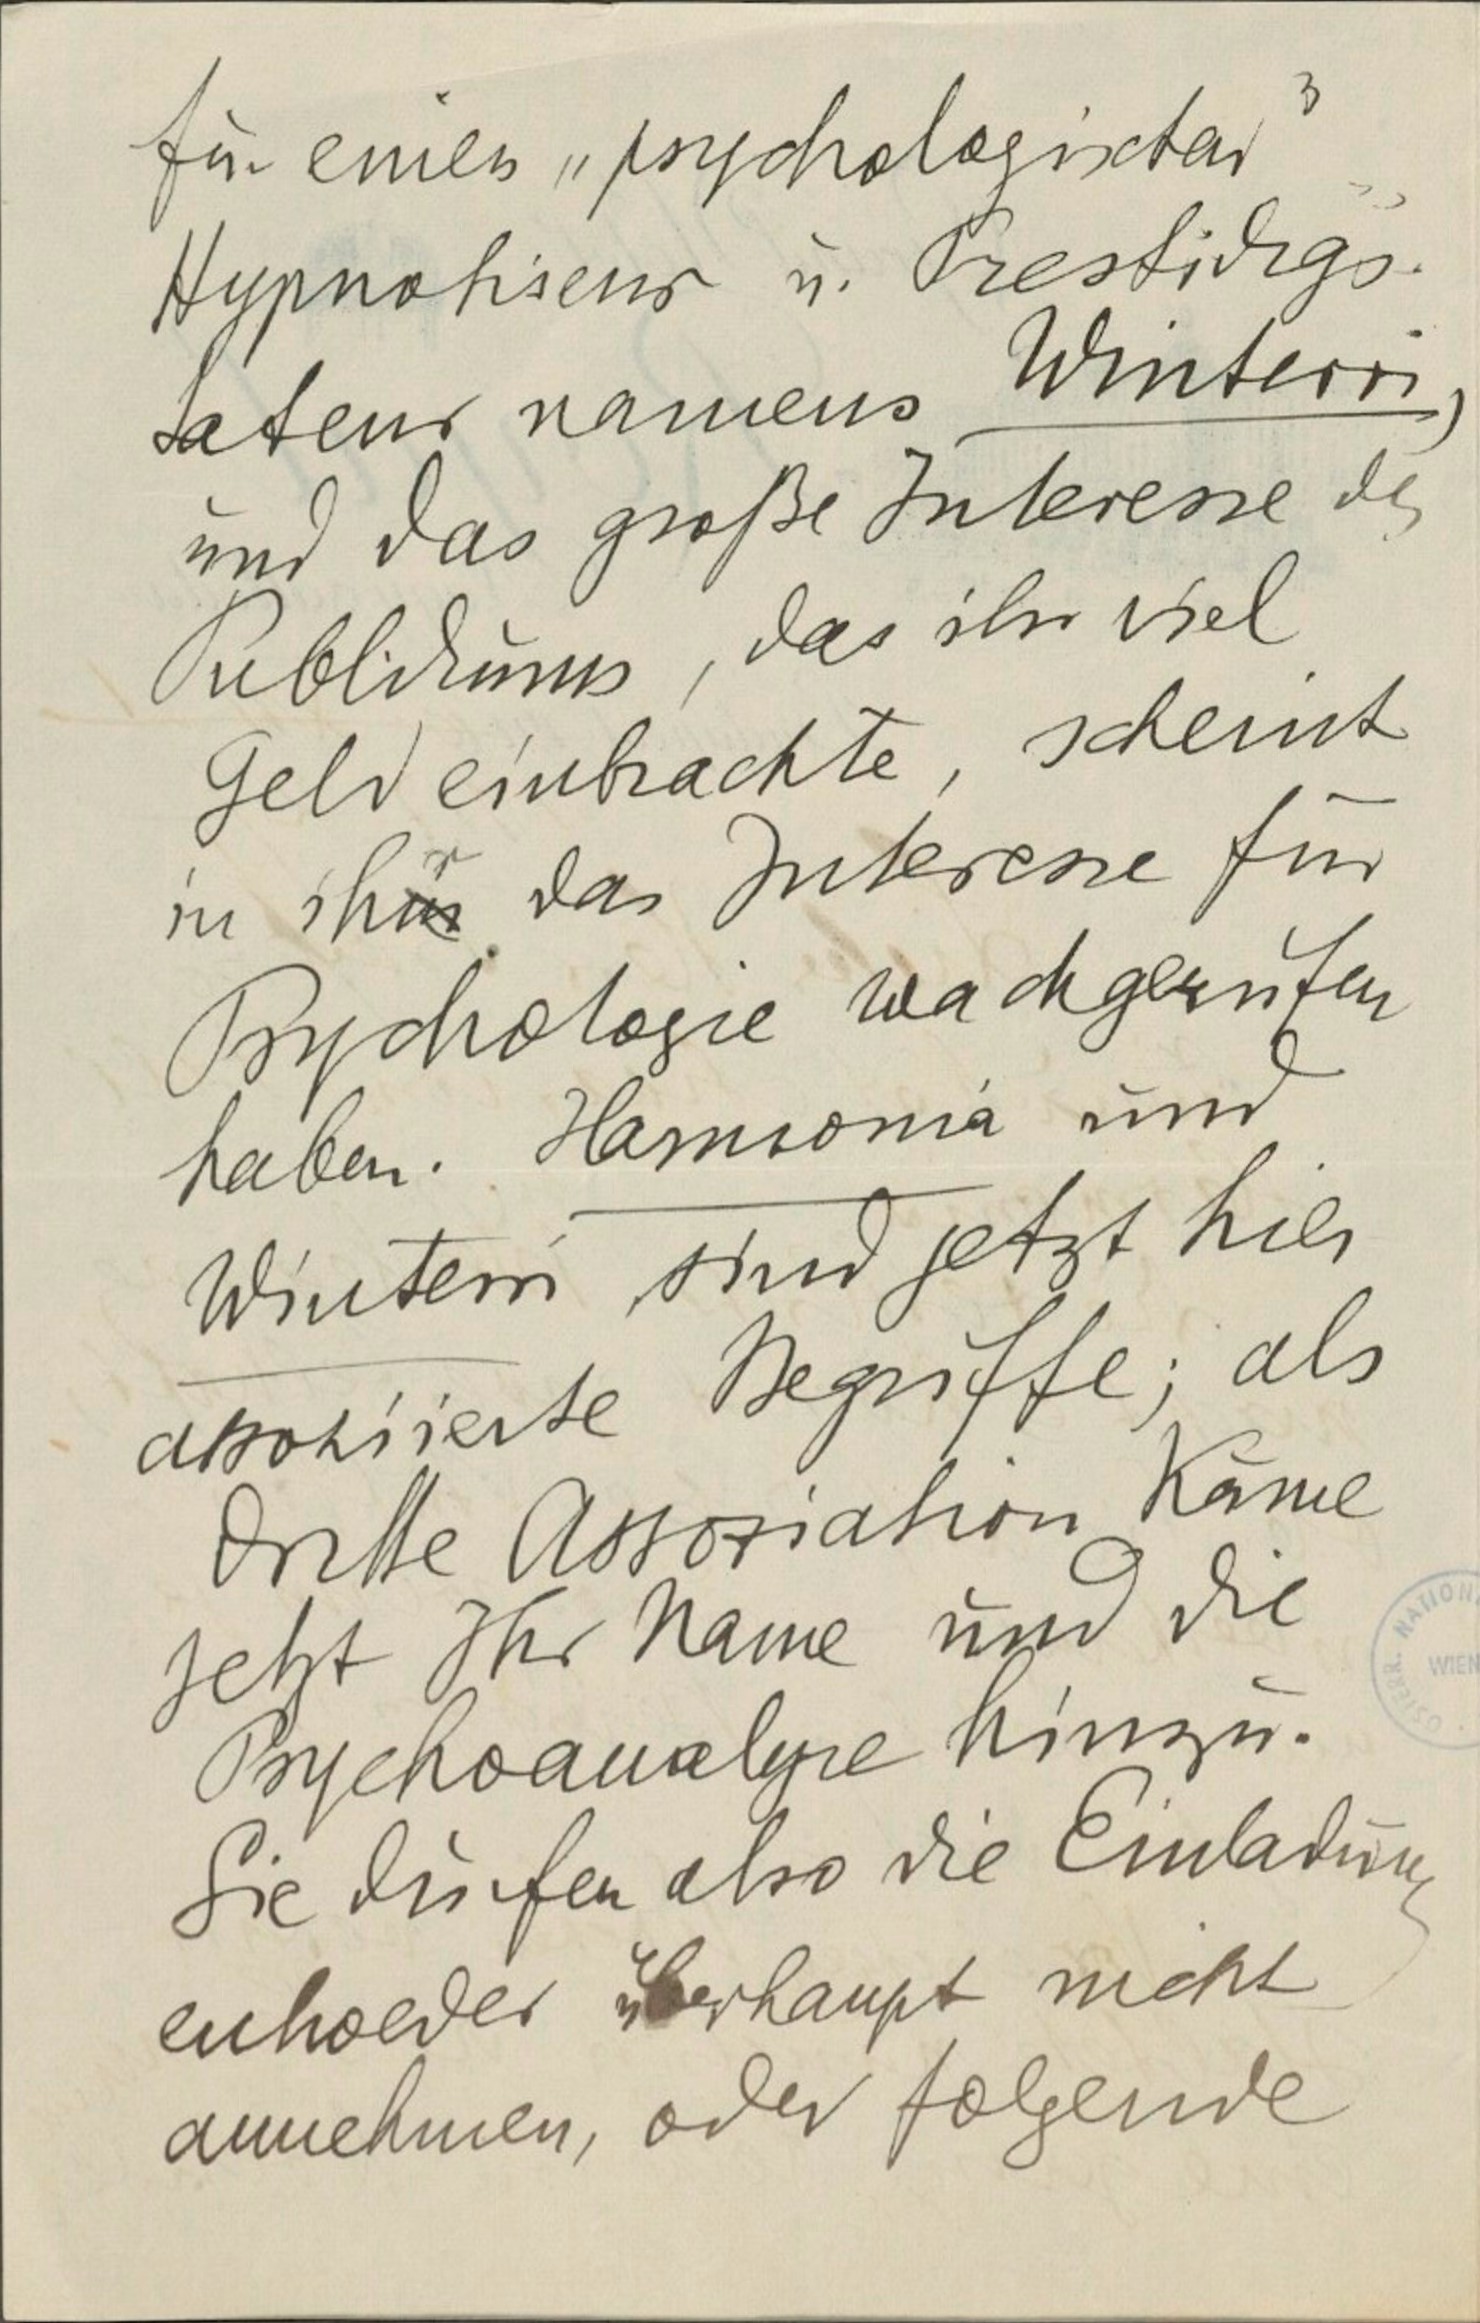 für einen „psychologischen 3
Hypnotiseur u. Prestidigi-
tateur namens Winterri,
und das große Interesse des
Publikums, das ihr viel
Geld einbrachte, scheint
in ihr das Interesse für
Psychologie wachgerufen
haben. Harmonia und
Winterri sind jetzt hier
assoziierte Begriffe; als
dritte Assoziation käme
jetzt Ihr Name und die
Psychoanalyse hinzu.
Sie dürfen also die Einladung
entweder überhaupt nicht
annehmen, oder folgende
ÖSTERR. NATION
WIEN